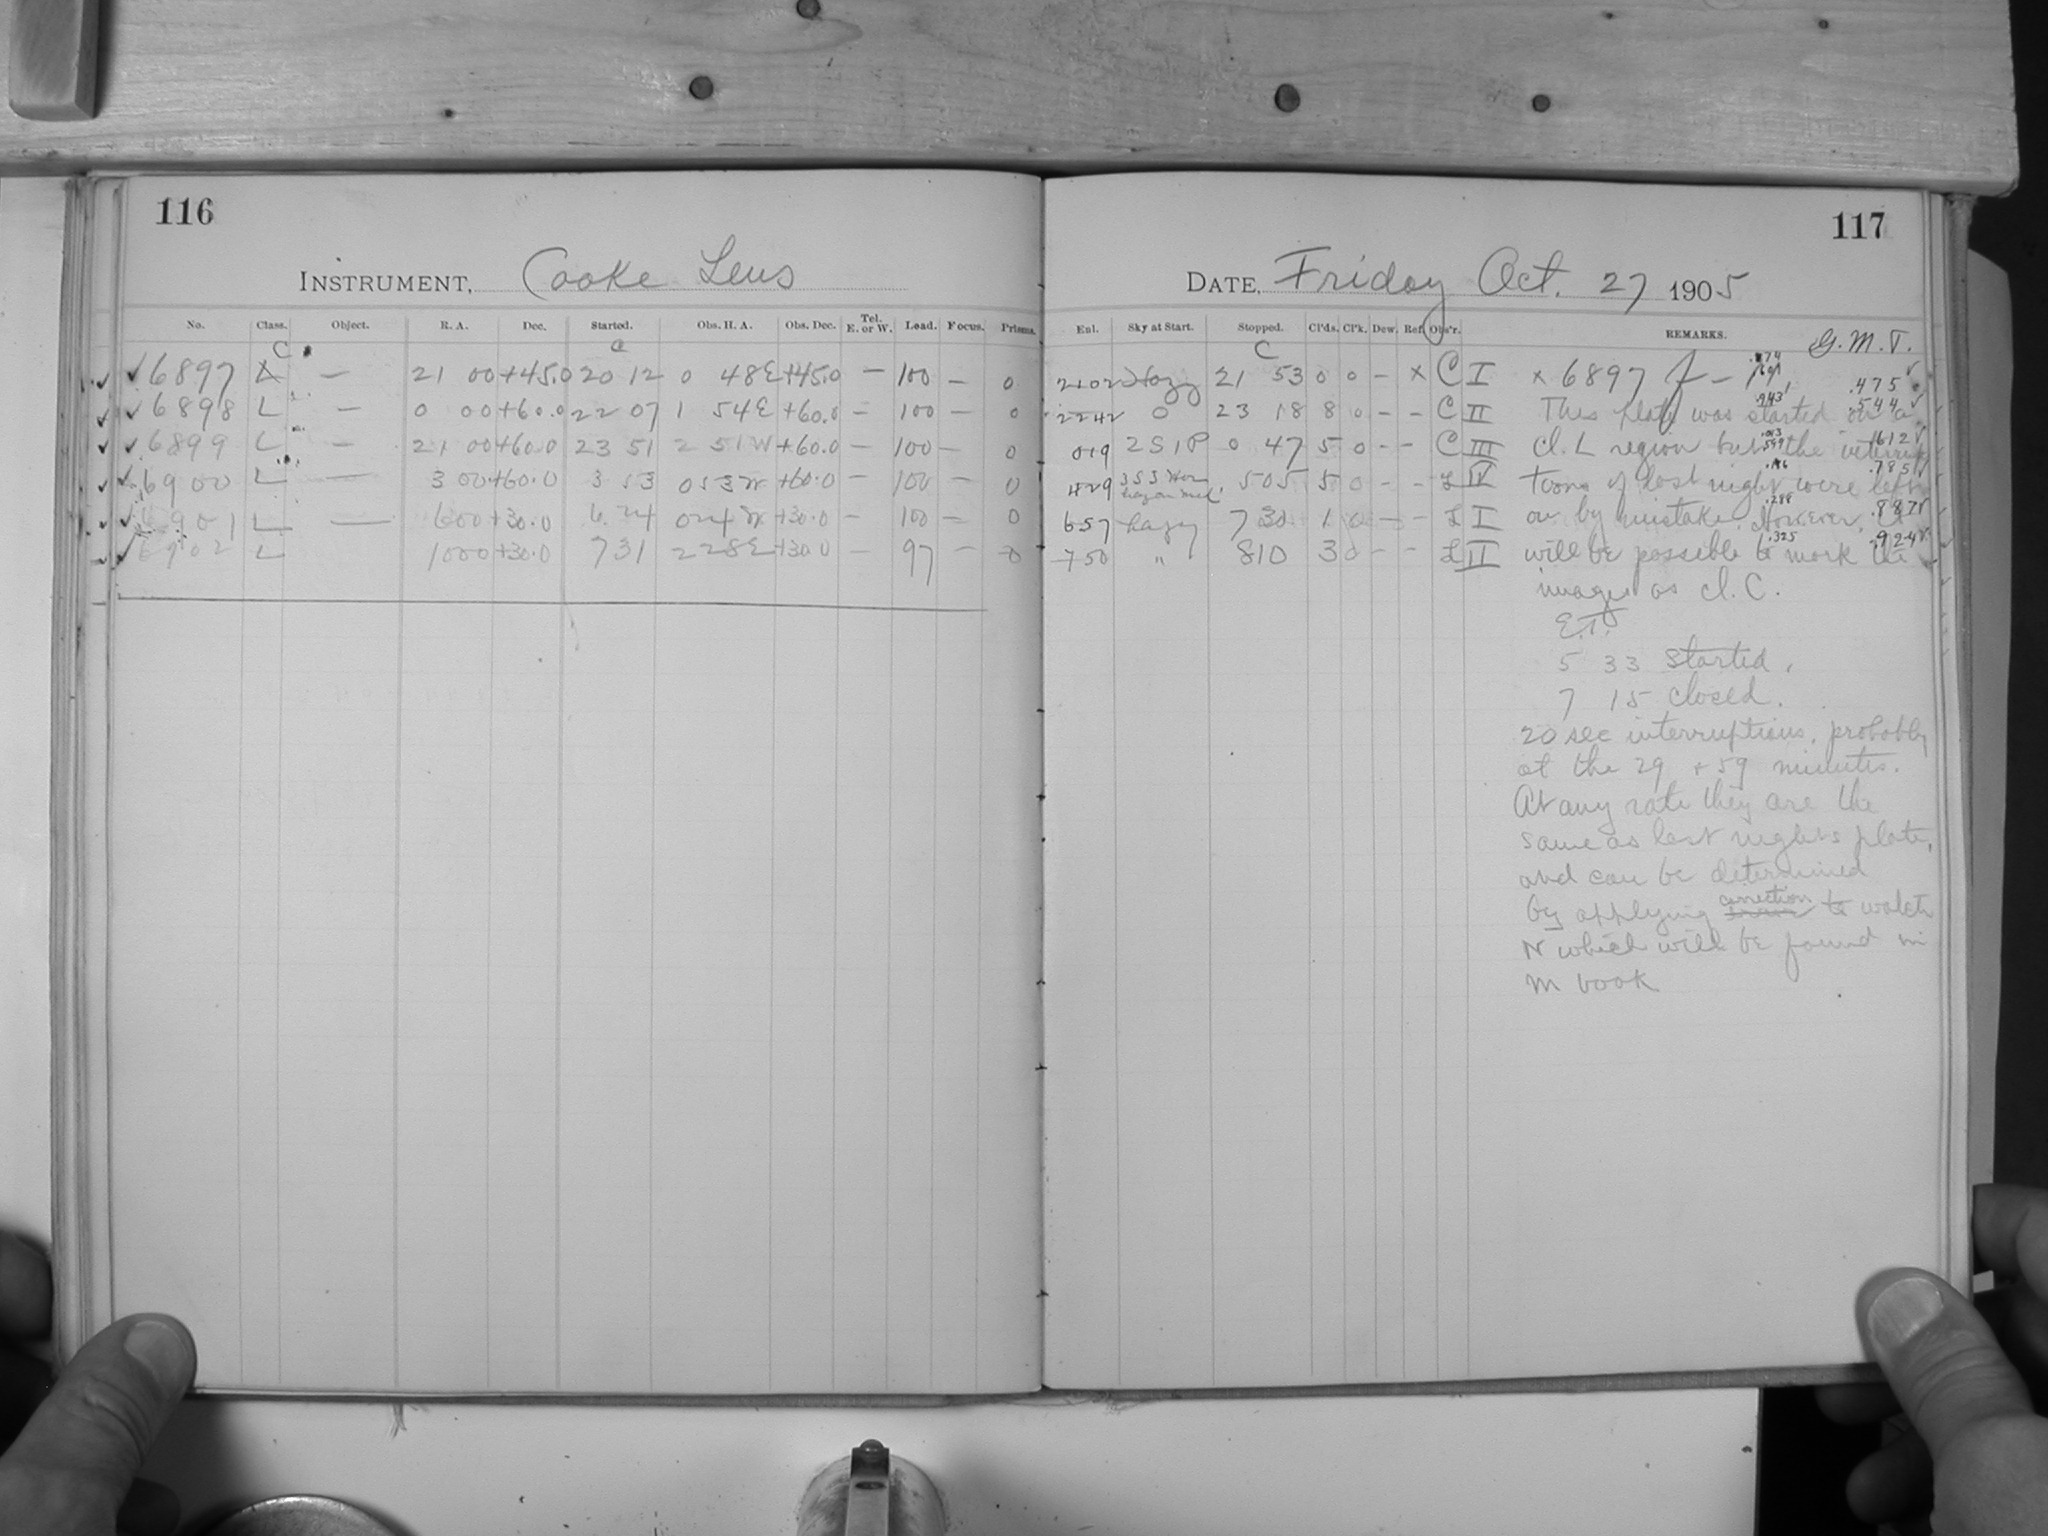 116
INSTRUMENT, Cooke Lens
No. Class. Object. R. A. Dec. Started. Obs. H. A. Obs. Dec. Tel. E. or W. Load. Focus. Prisms.
C C
✓ 6897 X — 21 00 +45.0 20 12 0 48 E +45.0 — 100 — 0
✓ 6898 L — 0 00 +60.0 22 07 1 54 E +60.0 — 100 — 0
✓ 6899 L — 21 00 +60.0 23 51 2 51 W +60.0 — 100 — 0
✓ 6900 L — 3 00 +60.0 3 53 0 53 W +60.0 — 100 — 0
✓ 6901 L — 6 00 +30.0 6 24 0 24 W +30.0 — 100 — 0
✓ 6902 L 10 00 +30.0 7 31 2 28 E +30.0 — 97 — 0
117
DATE, Friday Oct. 27 1905
Enl. Sky at Start. Stopped. Cl'ds. Cl'k. Dew. Ref. Obs'r. REMARKS. G. M. T.
C
21 02 Hazy 21 53 0 0 — X C I × 6897 .475 ✓
22 42 0 23 18 8 0 — — C II This plate was started on a .943 .544 ✓
0 19 2 S 1 P 0 47 5 0 — — C III Cl. L region but the interrup .612 ✓
4 29 3 53 5 05 5 0 — — L IV tions of last night were left .785 ✓
6 57 hazy 7 30 1 0 — — L I on by mistake. However, it .288 .887 ✓
7 50 " 8 10 3 0 — — L II will be possible to mark the .325 .924 ✓
images as Cl. C.
E.T.
5 33 started.
7 15 closed.
20 sec interruptions, probably
at the 29 + 59 minutes.
At any rate they are the
same as last nights plate,
and can be determined
by applying correction to watch
N which will be found in
M book